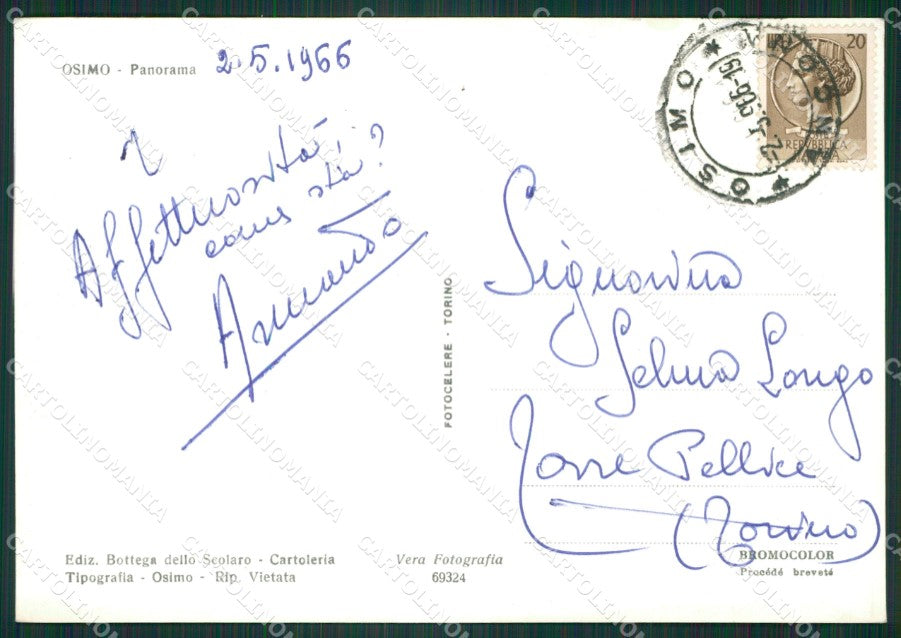 OSIMO - Panorama
2.5.1966
Affettuosità,
come stai?
Armando
FOTOCELERE - TORINO
20
REPUBBLICA
ITALIANA
OSIMO
Signorina
Selma Longo
Torre Pellice
(Torino)
Ediz. Bottega dello Scolaro - Cartoleria
Tipografia - Osimo - Rip. Vietata
Vera Fotografia
69324
BROMOCOLOR
Procédé breveté
CARTOLINOMANIA